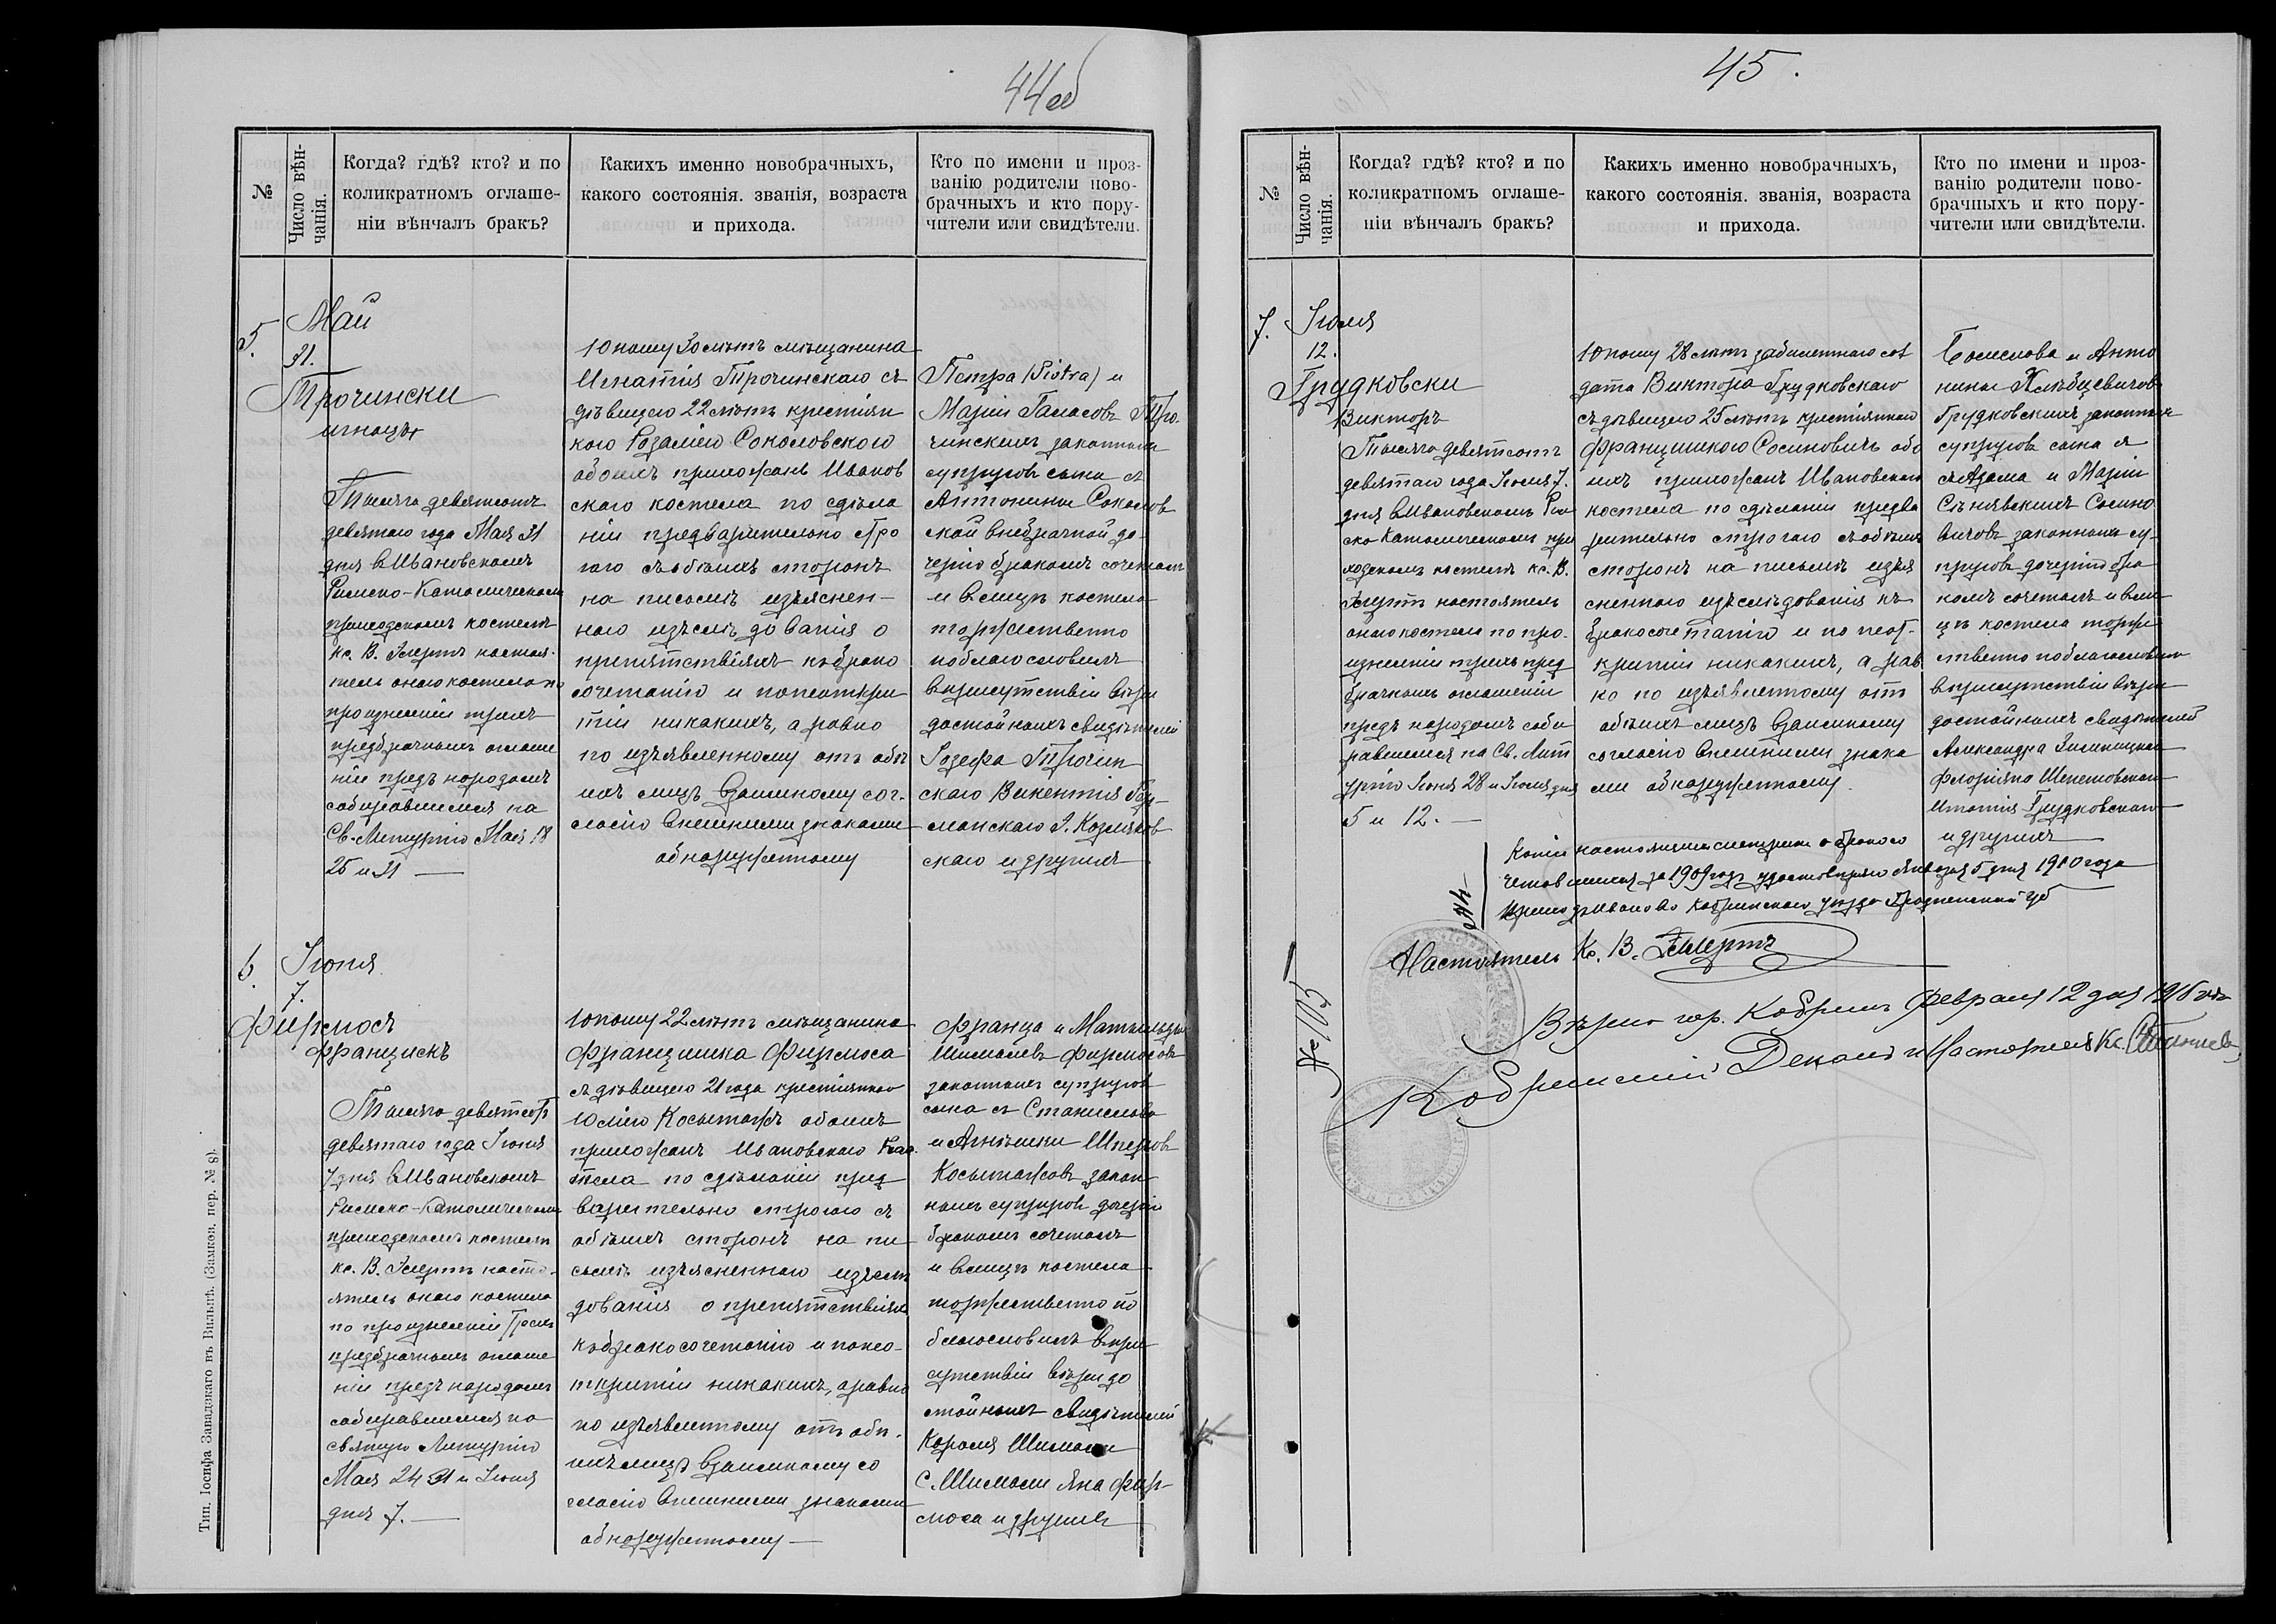 44об
№
Число вѣн-
чанія.
Когда? гдѣ? кто? и по
коликратномъ оглаше-
ніи вѣнчалъ бракъ?
Какихъ именно новобрачныхъ,
какого состоянія. званія, возраста
и прихода.
Кто по имени и проз-
ванію родители ново-
брачныхъ и кто пору-
чители или свидѣтели.
5.
Май
31.
Трочински
Игнацы
Тысяча девятсотъ
девятаго года Мая 31
дня в Ивановскомъ
Римско-Католическомъ
приходскомъ костелѣ
кс. В. настоя-
тель онаго костела по
произнесеніи трехъ
предбрачныхъ оглаше
ніи предъ народомъ
собиравшимся на
Св. Литургію Мая 18
25 и 31 —
Юношу 30 лѣтъ мѣщанина
Игнатія Трочинскаго съ
дѣвицею 22 лѣтъ крестіян
кою Розаліею Соколовскою
обоихъ прихожанъ Иванов
скаго костела по сдѣла
ніи предварительно стро
гаго съ обѣихъ сторонъ
на письмѣ изъяснен-
наго изслѣдованія о
препятствіяхъ къ брако
сочетанію и по неоткры
тіи никакихъ, а равно
по изъявленному отъ обѣ
ихъ лицъ взаимному сог-
ласію внешними знаками
обнаруженному
Петра (Piotra) и
Маріи Галасовъ Тро-
чинскихъ законныхъ
супруговъ сына съ
Антонины Соколов
ской внебрачной до-
черью бракомъ сочеталъ
и в лицѣ костела
торжественно
поблагословилъ
в присутствіи вѣры
достойныхъ свидѣтелей
Іозефа Трочин
скаго Викентія Гер-
манскаго І. Козляков
скаго и другихъ
6.
Іюня
7.
Фирмосъ
Францискъ
Тысяча девятсотъ
девятаго года Іюня
7 дня в Ивановскомъ
Римско-Католическомъ
приходскомъ костелѣ
кс. В. насто-
ятель онаго костела
по произнесеніи трехъ
предбрачныхъ оглаше
ніи предъ народомъ
собиравшимся на
святую Литургію
Мая 24 31 и Іюня
дня 7. —
Юношу 22 лѣтъ мѣщанина
Францишка Фирмоса
съ дѣвицею 21 года крестіянкою
Юлію Косынтажъ обоихъ
прихожанъ Ивановскаго кос-
тела по сдѣланіи пред
варительно строгаго съ
обѣихъ сторонъ на пи
сьмѣ изъясненнаго изслѣ
дованія о препятствіяхъ
къ бракосочетанію и по нео-
ткрытіи никакихъ, а равно
по изъявленному отъ обѣ-
ихъ лицъ взаимному со
гласію внешними знаками
обнаруженному —
Франца и Матильды
Шималевъ Фирмосовъ
законныхъ супруговъ
сына съ Станислава
и Агнѣшки
Косынтажовъ закон
ныхъ супруговъ дочерью
бракомъ сочеталъ
и в лицѣ костела
торжественно по
благословилъ в при
сутствіи вѣры до
стойныхъ свидѣтелей
Кароля Шимали
С. Шимали Яна Фир-
моса и другихъ
Тип. Іосифа Завадзкаго въ Вильнѣ. (Замков. пер. № 8).
45.
№
Число вѣн-
чанія.
Когда? гдѣ? кто? и по
коликратномъ оглаше-
ніи вѣнчалъ бракъ?
Какихъ именно новобрачныхъ,
какого состоянія. званія, возраста
и прихода.
Кто по имени и проз-
ванію родители ново-
брачныхъ и кто пору-
чители или свидѣтели.
7.
Іюля
12.
Грудковски
Викторъ
Тысяча девятсотъ
девятаго года Іюля
дня в Ивановскомъ Рим
ско Католическомъ при
ходскомъ костелѣ кс. В.
настоятель
онаго костела по про-
изнесеніи трехъ пред
брачныхъ оглашеніи
предъ народомъ соби
равшимся на Св. Лит
ургію Іюня 28 и Іюля дня
5 и 12. —
Юношу 28 лѣтъ забилетнаго сол
дата Виктора Грудковскаго
съ дѣвицею 25 лѣтъ крестіянкою
Францишкою Сосиновичъ обо
ихъ прихожанъ Ивановскаго
костела по сдѣланіи предва
рительно строгаго съ обѣихъ
сторонъ на письмѣ изъя
сненнаго изслѣдованія къ
бракосочетанію и по неот-
крытіи никакихъ, а рав
но по изъявленному отъ
обѣихъ лицъ взаимному
согласію внешними знака
ми обнаруженному.
Болеслова и Анто
нины Хлѣбцевичовъ
Грудковскихъ законныхъ
супруговъ сына
съ Адама и Маріи
Сосино
вичовъ законныхъ су-
пруговъ дочерью бра
комъ сочеталъ и в ли
цѣ костела торже
ственно поблагословилъ
в присутствіи вѣры
достойныхъ свидѣтелей
Александра
Флоріяна Шпетовскаго
Игнатія Грудковскаго
и другихъ
Копіи настоящей метрики о брако
четавшихся за 1909 годъ удостовѣряю Января 5 дня 1910 года
Иваново Кобринскаго уѣзда Гродненской губ
Настоятель Кс. В.
№ 105
Вѣрно гор. Кобринъ Февраля 12 дня 1910 года
Кобринскій Деканъ и Настоятель Кс.